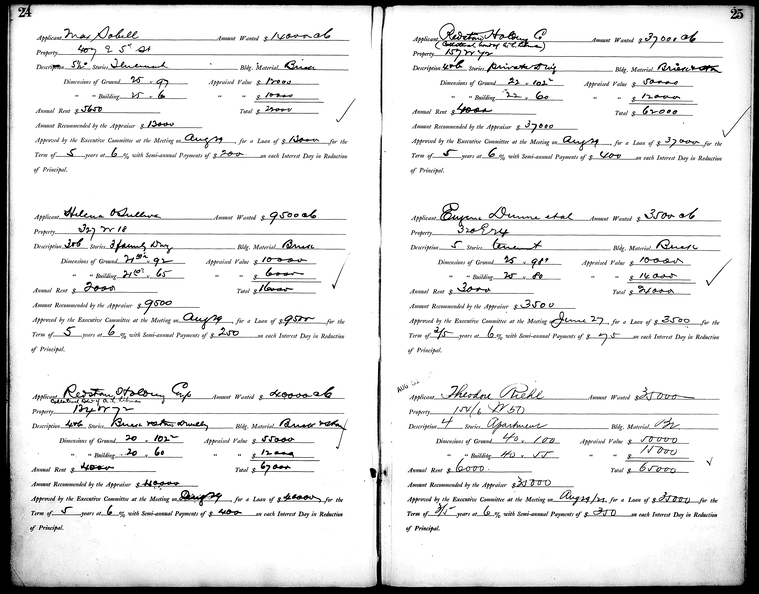 24
Applicant Max Sobell Amount Wanted $ 14000 a6
Property 407 E 5th St
Description 5 Stories Tenement Bldg. Material Brick
Dimensions of Ground 25 × 97 Appraised Value $ 12000
" " Building 25 × 6 " " $ 10000
Annual Rent $ 5650 Total $ 22000
Amount Recommended by the Appraiser $ 13000
Approved by the Executive Committee at the Meeting on Aug 29 , for a Loan of $ 13000 for the
Term of 5 years at 6 % with Semi-annual Payments of $ 200 on each Interest Day in Reduction
of Principal.
Applicant Helena O'Sullivan Amount Wanted $ 9500 a6
Property 327 W 18
Description 3 Stories 3 family Dwg Bldg. Material Brick
Dimensions of Ground × 92 Appraised Value $ 10000
" " Building × 65 " " $ 6000
Annual Rent $ 2000 Total $ 16000
Amount Recommended by the Appraiser $ 9500
Approved by the Executive Committee at the Meeting on Aug 29 , for a Loan of $ 9500 for the
Term of 5 years at 6 % with Semi-annual Payments of $ 250 on each Interest Day in Reduction
of Principal.
Applicant Redston Holding Corp Amount Wanted $ 40000 a6
Property 124 W 72
Description Stories Brick Bldg. Material Brick
Dimensions of Ground 20 × 102 Appraised Value $ 55000
" " Building 20 × 60 " " $ 12000
Annual Rent $ 4000 Total $ 67000
Amount Recommended by the Appraiser $ 40000
Approved by the Executive Committee at the Meeting on Aug 29 , for a Loan of $ 40000 for the
Term of 5 years at 6 % with Semi-annual Payments of $ 400 on each Interest Day in Reduction
of Principal.
25
Applicant Redston Holding Co Amount Wanted $ 37000 a6
Property 157 W 72
Description Stories private Dwg Bldg. Material
Dimensions of Ground 22 × 102 Appraised Value $ 50000
" " Building 22 × 60 " " $ 12000
Annual Rent $ 4000 Total $ 62000
Amount Recommended by the Appraiser $ 37000
Approved by the Executive Committee at the Meeting on Aug 29 , for a Loan of $ 37000 for the
Term of 5 years at 6 % with Semi-annual Payments of $ 400 on each Interest Day in Reduction
of Principal.
Applicant Eugene Dunne et al Amount Wanted $ 3500 a6
Property 320 E 74
Description 5 Stories tenement Bldg. Material Brick
Dimensions of Ground 25 × 98 Appraised Value $ 10000
" " Building 25 × 80 " " $ 14000
Annual Rent $ 3000 Total $ 24000
Amount Recommended by the Appraiser $ 3500
Approved by the Executive Committee at the Meeting on June 27 , for a Loan of $ 3500 for the
Term of 3/5 years at 6 % with Semi-annual Payments of $ 75 on each Interest Day in Reduction
of Principal.
Applicant Theodore Riehl Amount Wanted $ 35000
Property W 50
Description 4 Stories Apartment Bldg. Material Br
Dimensions of Ground 40 × 100 Appraised Value $ 50000
" " Building 40 × 55 " " $ 15000
Annual Rent $ 6000 Total $ 65000
Amount Recommended by the Appraiser $ 35000
Approved by the Executive Committee at the Meeting on Aug 29/ , for a Loan of $ 35000 for the
Term of 3/5 years at 6 % with Semi-annual Payments of $ 350 on each Interest Day in Reduction
of Principal.